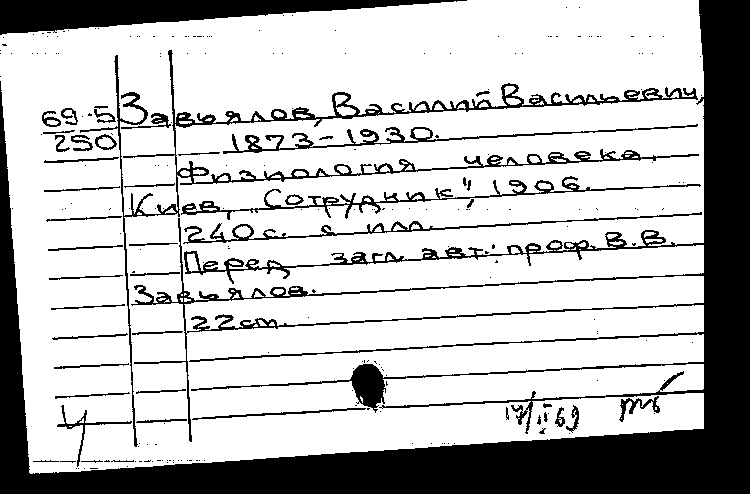 69-5 Завьялов, Василий Васильевич,
250 1873-1930.
Физиология человека.
Киев, "Сотрудник", 1906.
240с. с илл.
Перед загл. авт.: проф. В.В.
Завьялов.
22cm.
17/II 69